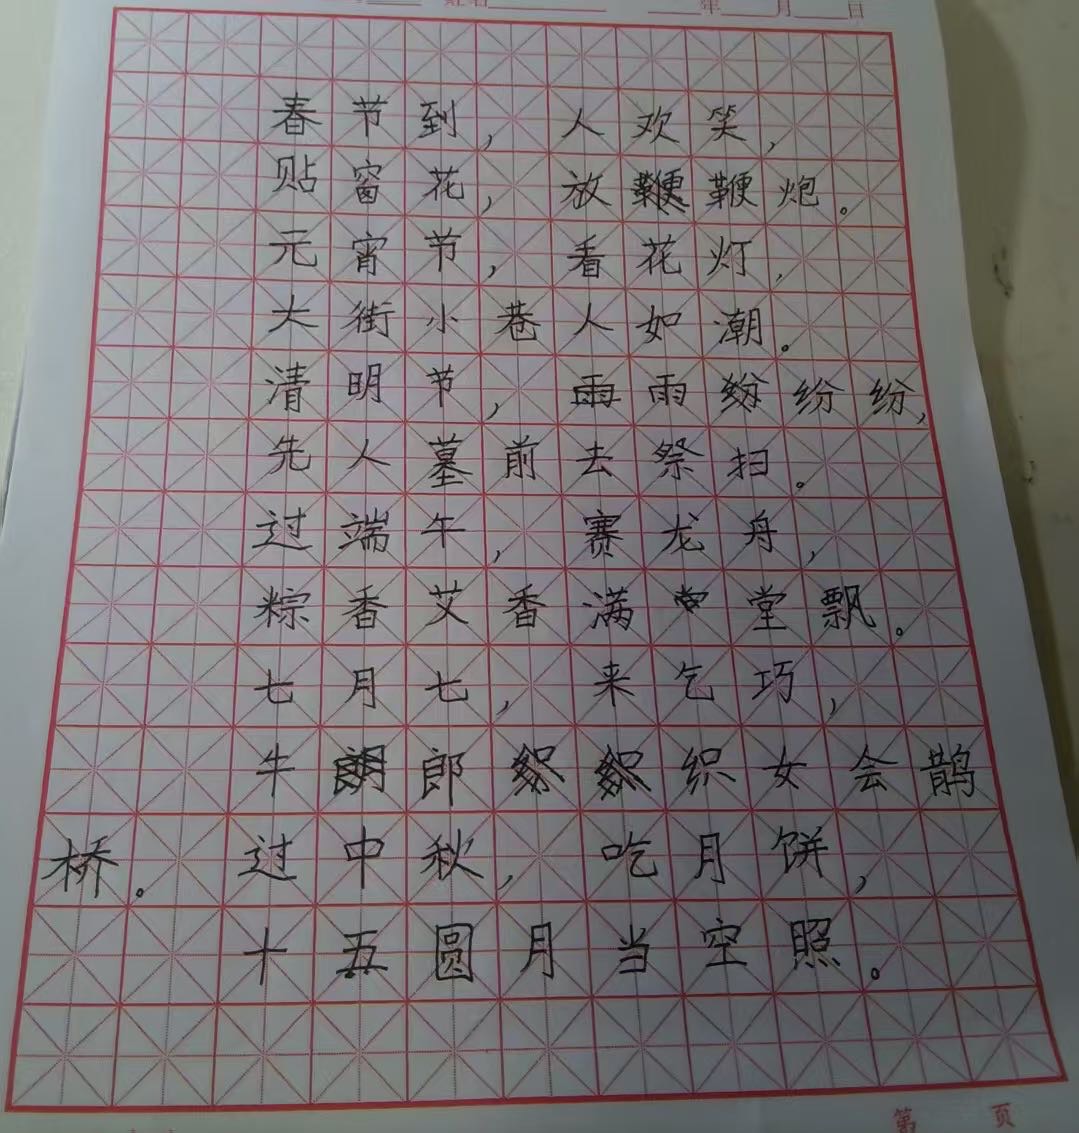 年 月 日
春节到，人欢笑，
贴窗花，放鞭鞭炮。
元宵节，看花灯，
大街小巷人如潮。
清明节，雨雨纷纷纷，
先人墓前去祭扫。
过端午，赛龙舟，
粽香艾香满堂飘。
七月七，来乞巧，
牛郎织女会鹊
桥。过中秋，吃月饼，
十五圆月当空照。
第 页